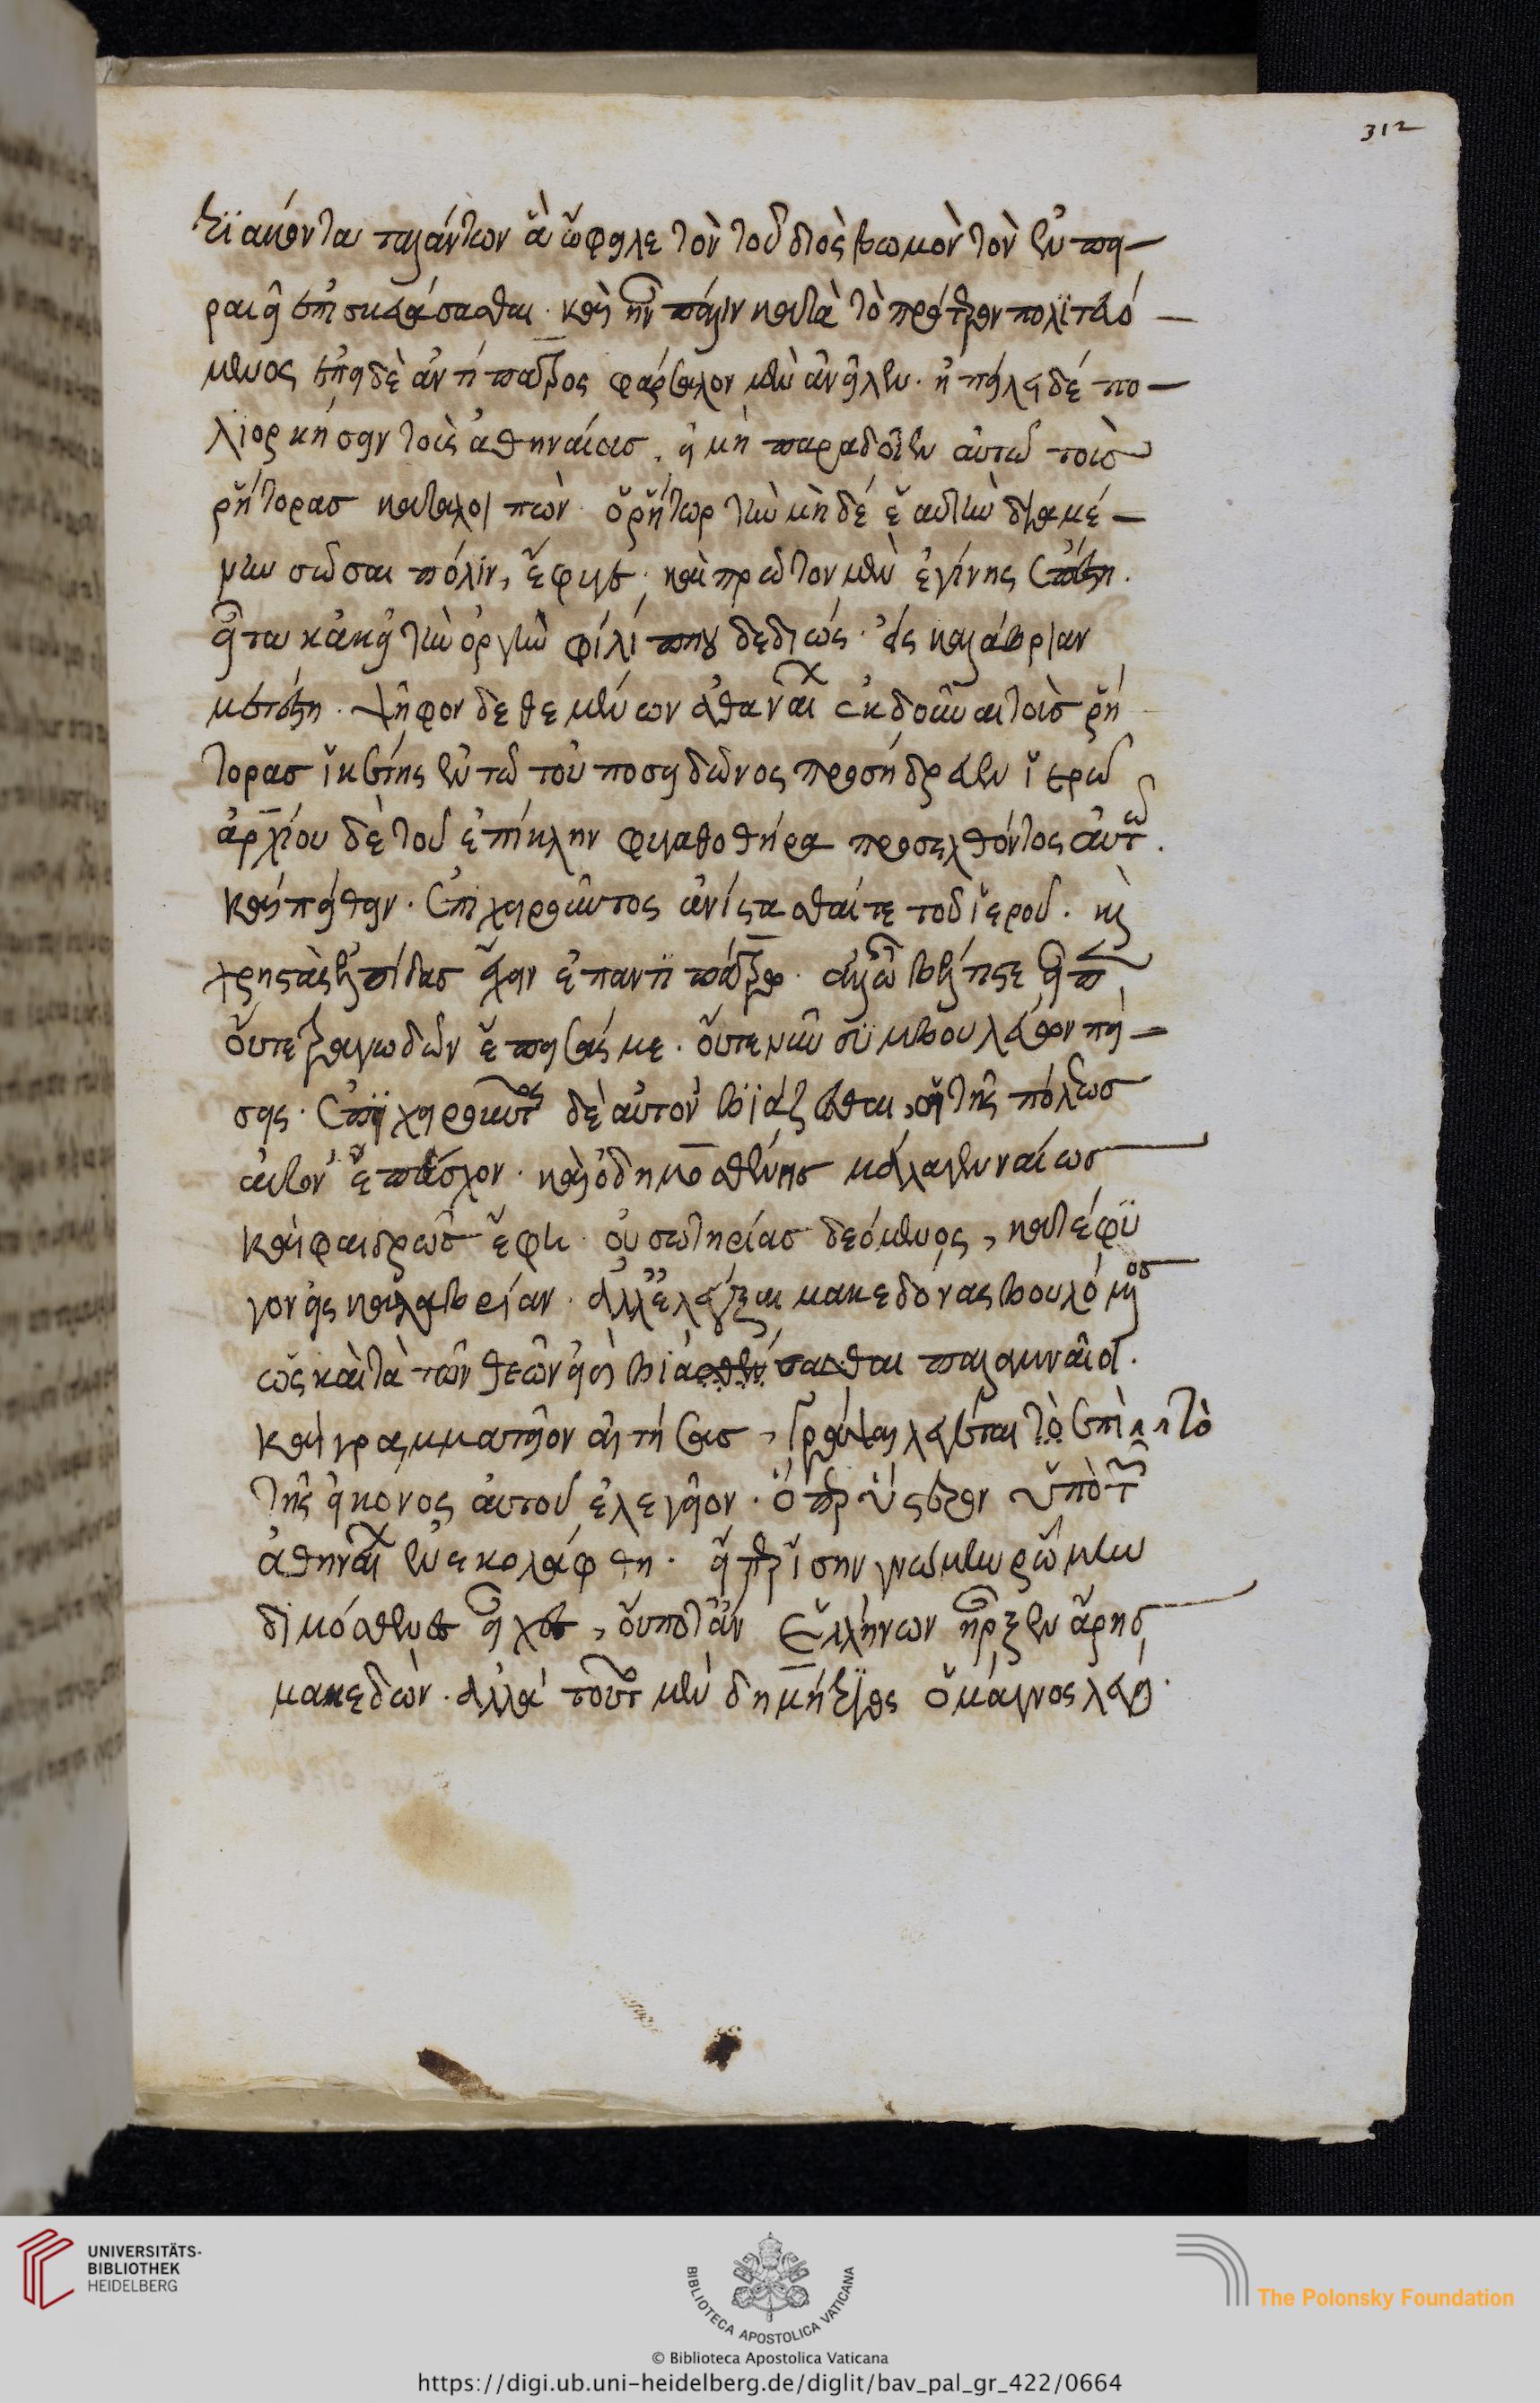 312
τριακόντα ταλάντων ἃ ὤφειλε τὸν τοῦ διὸς βωμὸν τὸν ἐν πει
ραιεῖ ἐπισκευάσασθαι· καὶ ἦν πάλιν κατὰ τὸ πρότερον πολιτευό
μενος ἐπεὶ δὲ ἀντίπατρος φάρσαλον μὲν ἀνεῖλεν· ἠπείλει δέ πο
λιορκήσειν τοὺς ἀθηναίους, εἰ μὴ παραδοῖεν αὐτῶ τοὺς
ῥήτορας καταλοιπὼν ὁ ῥήτωρ τὴν μὴ δέ ἑαυτὴν διαμέ
νην σῶσαι πόλιν, ἔφυγε· καὶ πρῶτον μὲν ἐγίνης ἐπέβη·
εἶτα κἀκεῖ τὴν ὀργὴν φιλίππου δεδιώς· εἰς καλάβριαν
μετέβη· ψῆφον δε θεμένων ἀθηναί ἐκδοῦναι τοὺς ῥή
τορας ἱκέτης ἐν τῶ τοῦ ποσειδῶνος προσήδρευεν ἱερῶ
ἀρχίου δὲ τοῦ ἐπίκλην φυγαδοθήρα προσελθόντος αὐτῶ·
καὶ πείθειν· ἐπιχειροῦντος ἀνίστασθαί τε τοῦ ἱεροῦ· καὶ
χρηστὰς ἐλπίδας ἔχειν ἐπ' ἀντιπάτρω·
οὔτε τραγωδῶν ἔπεισάς με· οὔτε νῦν συμβουλεύων πεί
σεις· ἐπιχειροῦντος δὲ αὐτὸν βιάζεσθαι, οἱ τῆς πόλεως
αὐτὸν ἐπέσχον· καὶ ὁ δημοσθένης μάλα γενναίως
καὶ φαιδρῶς ἔφη· οὐ σωτηρίας δεόμενος, κατέφυ
γον εἰς καλαβρίαν· ἀλλ' ἐλέγξαι μακεδόνας βουλόμενος
ὡς καὶ τὰ τῶν θεῶν εἰσὶ βιάσασθαι παλαμναῖοι·
καὶ γραμματεῖον αἰτήσας, γράψαι λέγεται τὸ ἐπὶ τὸ
τῆς εἰκόνος αὐτοῦ ἐλεγεῖον· ὅπερ ὕστερον ὑπὸ τῶν
ἀθηναί ἐνεκολάφθη· εἴπερ ἴσην γνώμην ῥώμην
διμόσθενες εἶχες, οὔποτ' ἂν ἑλλήνων ἦρξεν ἄρης
μακεδών· ἀλλὰ τοῦτο μὲν δημήτριος ὁ μάγνης λέγει·
UNIVERSITÄTS-
BIBLIOTHEK
HEIDELBERG
BIBLIOTECA APOSTOLICA VATICANA
The Polonsky Foundation
© Biblioteca Apostolica Vaticana
https://digi.ub.uni-heidelberg.de/diglit/bav_pal_gr_422/0664